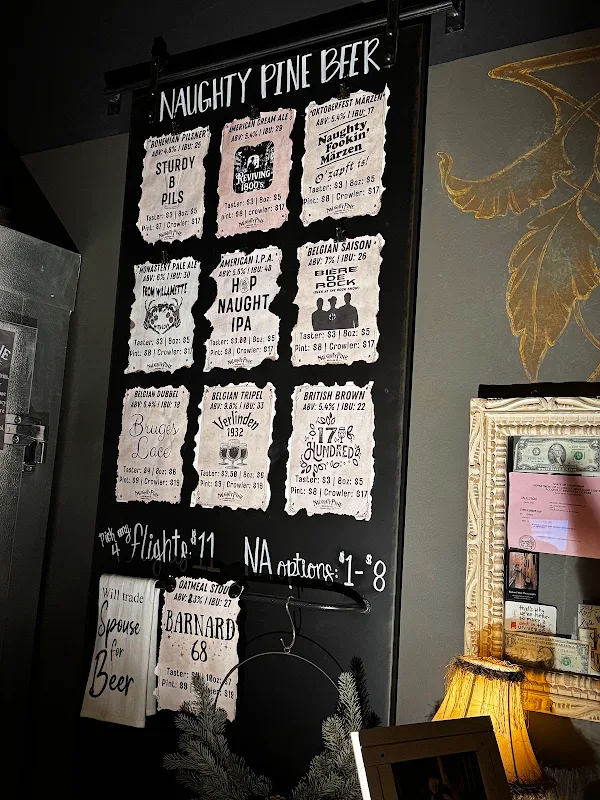 NAUGHTY PINE BEER
BOHEMIAN PILSNER
ABV: 4.8% | IBU: 25
STURDY
B
PILS
Taster: $3 | 8oz: $5
Pint: $7 | Crowler: $17
Naughty Pine
AMERICAN CREAM ALE
ABV: 5.4% | IBU: 29
REVIVING
1800's
Taster: $3 | 8oz: $5
Pint: $8 | Crowler: $17
Naughty Pine
"OKTOBERFEST MÄRZEN"
ABV: 5.4% | IBU: 17
Naughty
Fookin'
Märzen
O'zapft is!
Taster: $3 | 8oz: $5
Pint: $8 | Crowler: $17
Naughty Pine
"MONASTERY PALE ALE"
ABV: 6% | IBU: 30
FROM WILLAMETTE
Taster: $3 | 8oz: $5
Pint: $8 | Crowler: $17
Naughty Pine
AMERICAN I.P.A.
ABV: 5.5% | IBU: 48
HOP
NAUGHT
IPA
Taster: $3.00 | 8oz: $5
Pint: $8 | Crowler: $17
Naughty Pine
BELGIAN SAISON
ABV: 7% | IBU: 26
BIÈRE
DE
ROCK
Taster: $3 | 8oz: $5
Pint: $8 | Crowler: $17
Naughty Pine
BELGIAN DUBBEL
ABV: 6.4% | IBU: 18
Bruges
Lace
Taster: $4 | 8oz: $6
Pint: $9 | Crowler: $19
Naughty Pine
BELGIAN TRIPEL
IBU: 33
Verlinden
1932
Taster: $3.50 | 8oz: $6
Pint: $9 | Crowler: $18
Naughty Pine
BRITISH BROWN
ABV: 5.4% | IBU: 22
17
HUNDREDS
Taster: $3 | 8oz: $5
Pint: $8 | Crowler: $17
Naughty Pine
Pick any
4 flights: $11
NA options: $1-$8
Will trade
Spouse
for
Beer
OATMEAL STOUT
IBU: 27
BARNARD
68
Taster:
Pint: $9